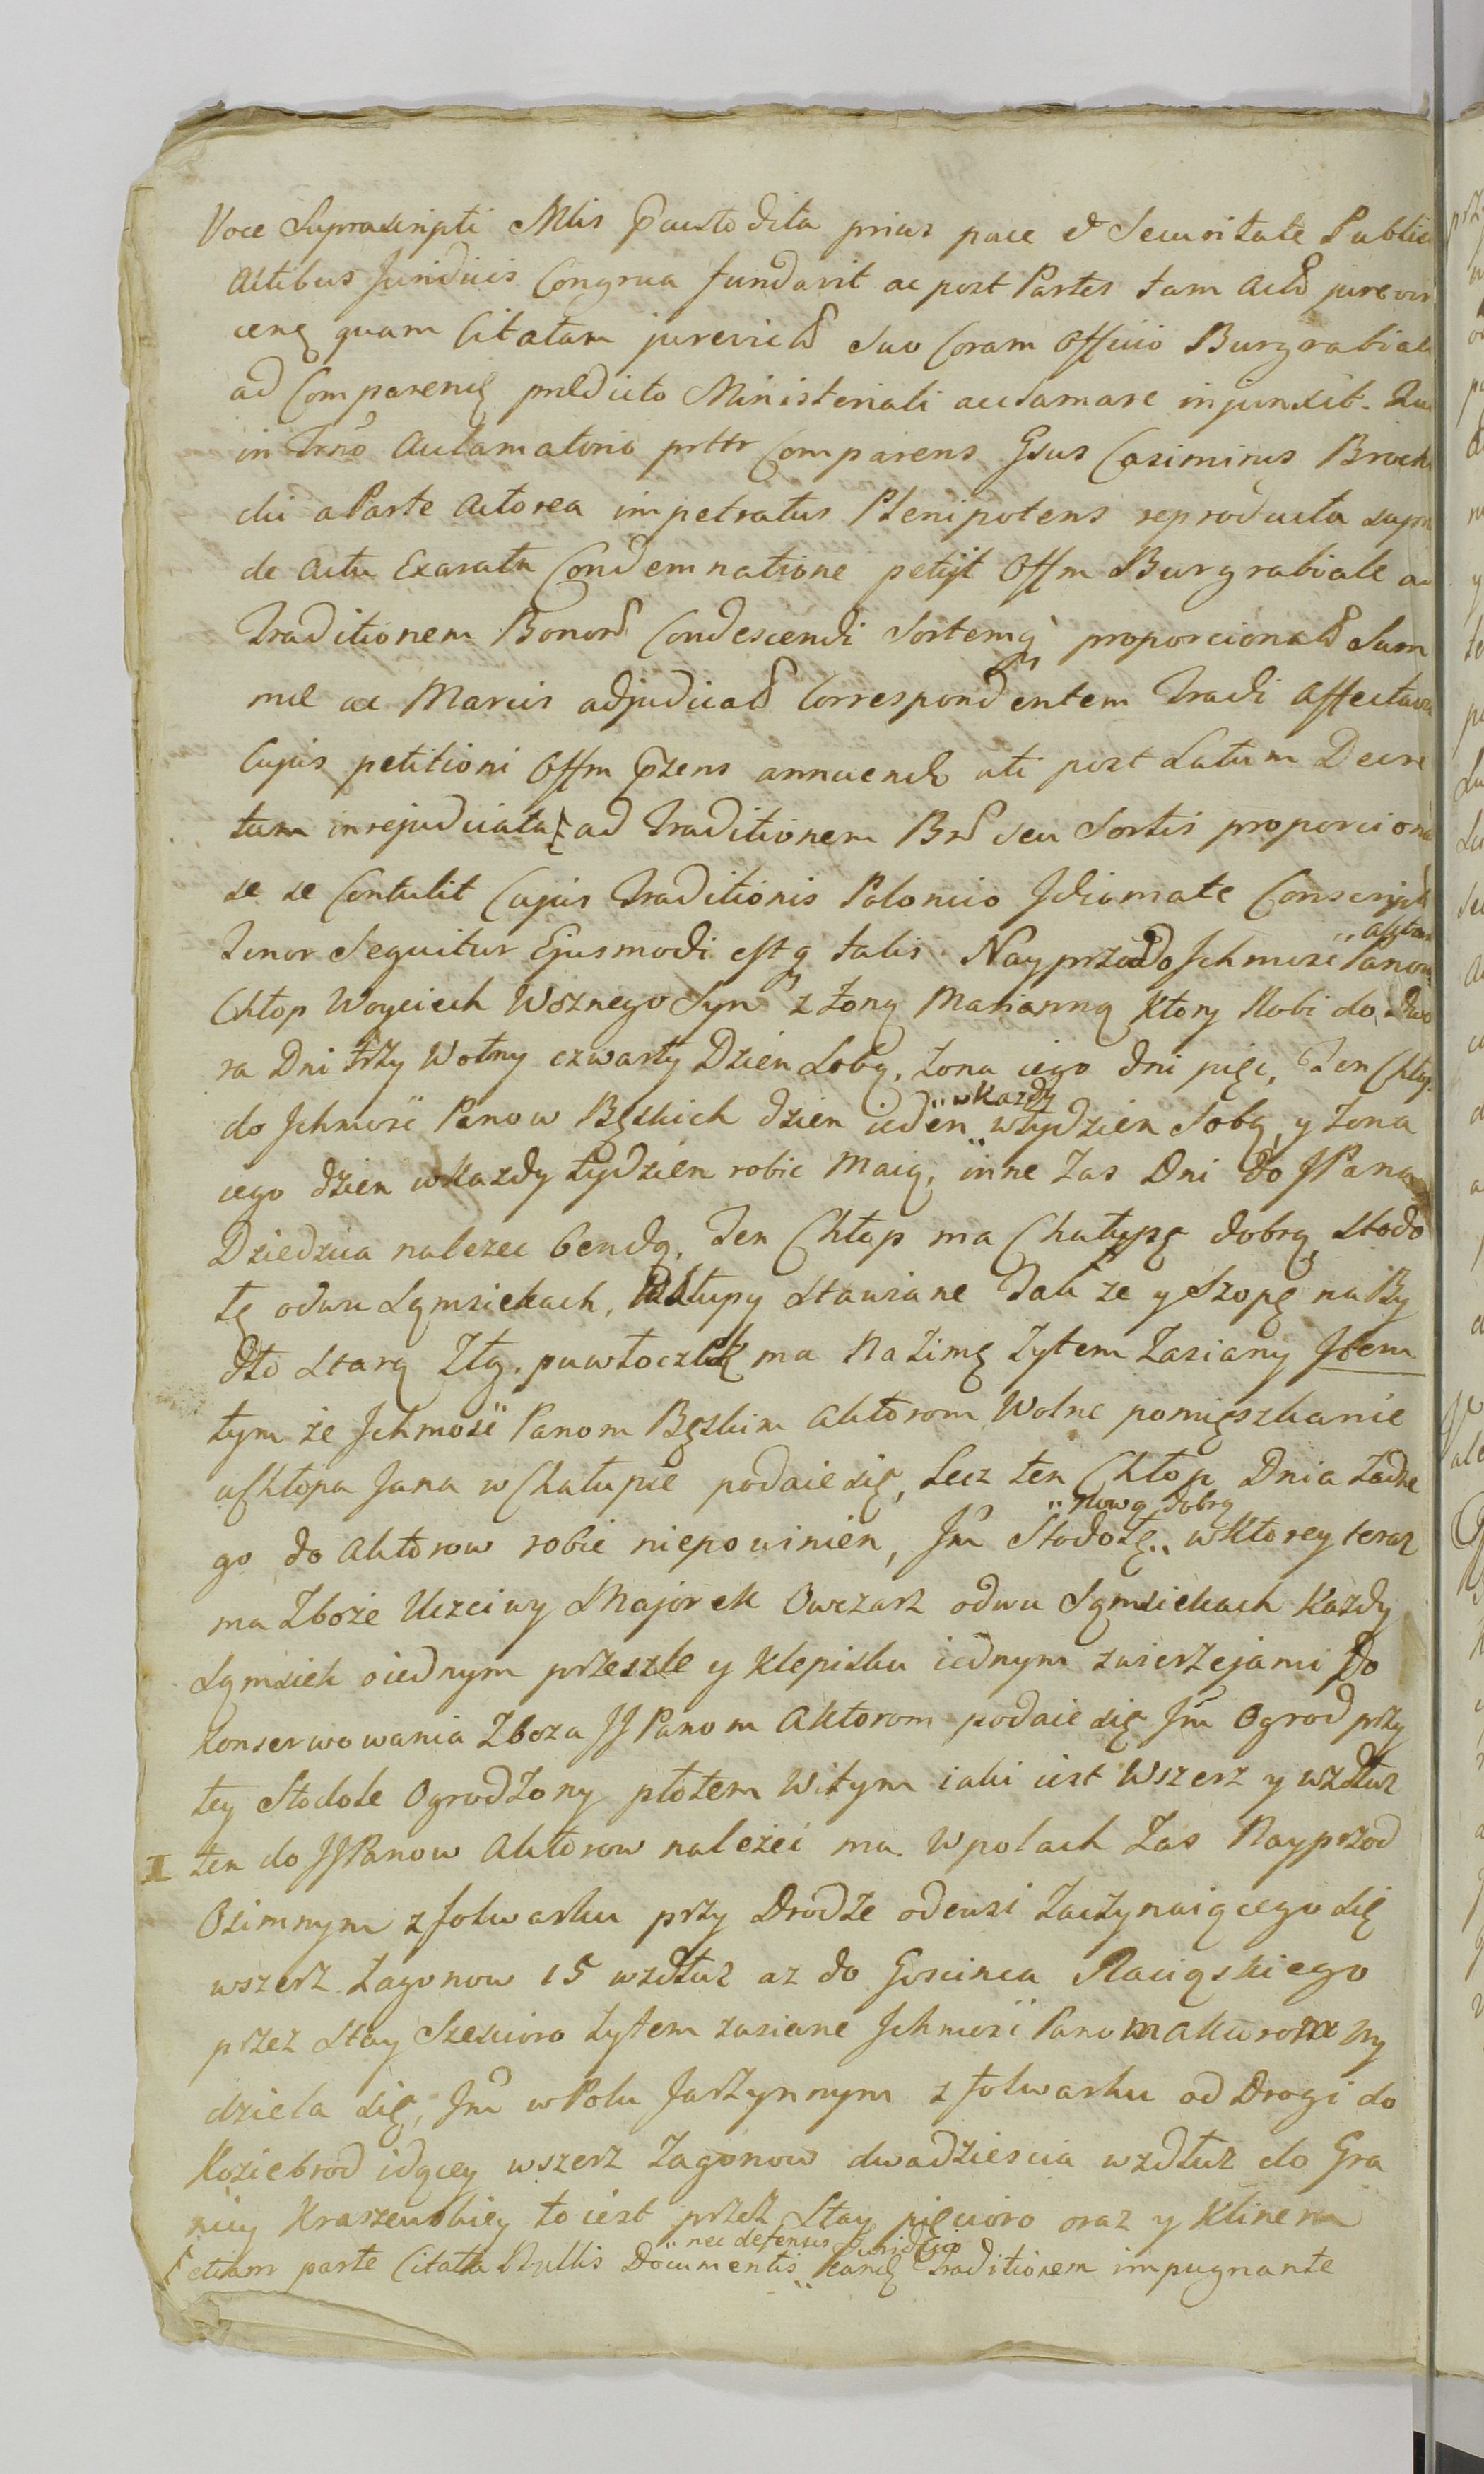 Voce Suprascripti Mlis Custodita prius pace et Securitate Public
Actibus Juridicis Congrua fundavit ac post Partes tam Act jurevin
cenę quam Citatam jurevict suo Coram Officio Burgrabiali
ad Comparenę prædicto Ministeriali acclamare injunxit.
in Trno Acclamatorio prttr Comparens Gsus Casimirus Broch
cki a Parte Actorea impetratus Plenipotens reproducta supra
de Actu Exarata Condemnatione petijt Offm Burgrabiale ad
Traditionem Bonor Condescendi Sortemq proporcional Sum
mæ ac Marcis adjudicat Correspondentem Tradi Affectavit
Cujus petitioni Offm Pzens annuendo uti post Latum Decre
tum inrejudicata ad Traditionem Br seu Sortis proporciona
se se Contulit Cujus Traditionis Polonico Jdiomate Conscript
Tenor Sequitur Ejusmodi estq talis. Nayprzodo Jchmość Panow
Chłop Woyciech Woznego Syn z Zoną Marianną Ktory Robi do Dwo
ra Dni trzy Wołny czwarty Dzien Sobą, Zona iego dni pięc, Ten Chłop
do Jchmosć Panow Bęskich dzien ieden „w Kazdy„ wtydzien Sobą, y Zona
iego dzien w Kazdy tydzien robic Maią, inne Zas Dni do JPana
Dziedzica nalezec bendą. Ten Chłop ma Chałupę dobrą, Stodo
łę odwu Sąmsiekach, Słupy Stawiane Tak ze y Szopę na By
dło Starą Złą. puwłoczek ma Na Zimę Zytem Zasiany Jtem
tym że Jchmość Panom Bęskim Aktorom Wolne pomięszkanie
u Chłopa Jana w Chałupie podaie się, Lecz ten Chłop Dnia żadne
go do Aktorow robic niepowinien, Jm Stodołę „Nową dobrą„ w Ktorey teraz
ma Zboże Uczciwy Majorek Owczarz odwu Sąmsiekach Każdy
Sąmsiek oiednym przeszle y Klepisku iednym zwierzejami Do
Konserwowania Zboza JJPanom Aktorom podaie się Jm Ogrod przy
tey Stodole Ogrodzony płotem Witym iaki iest Wszerz y wzdłuz
ten do JJPanow Aktorow należeć ma. W polach Zas Nayprzod
Ozimnym z folwarku przy Drodze odewsi Zaczynaiącego się
wszerz Zagonow 15 wzdłuz az do Goscinca Raciąskiego
przez Stay Szescioro Zytem zasiane Jchmość Panom Aktorom wy
dziela się, Jm w Polu Jarzynnym z folwarku od Drogi do
Koziebrod idącey wszerz Zagonow dwadziescia wzdłuz do Gra
nicy Kraszewskiey to iest przez Stay pięcioro oraz y Klinem
etiam parte Citata Nullis Documentis „nec defensis Juridicis„ eandę Traditionem impugnante